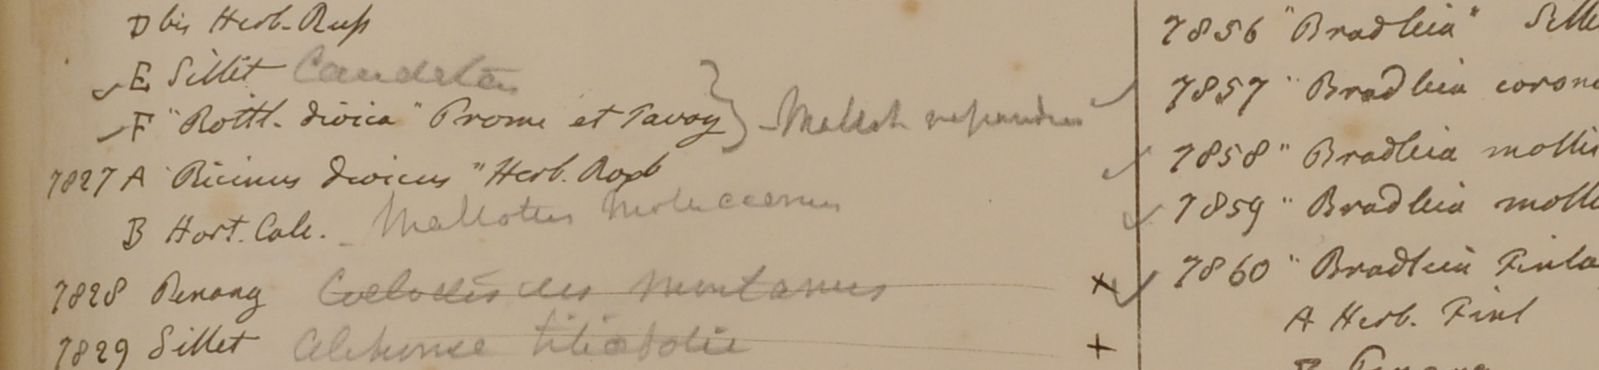 D bis Herb. Rup
E Sillet
F "Rottl. dioica" Prome et Tavoy } - Mallot repandus
7827 A "Ricinus dioicus" Herb. Roxb
B Hort. Calc. - Mallotus moluccanus
7828 Penang montanus x
7829 Sillet tiliaefolia +
7856 "Bradleia" Sille
7857 "Bradleia corona
7858 "Bradleia mollis
7859 "Bradleia molli
7860 "Bradleia Finla
A Herb. Finl